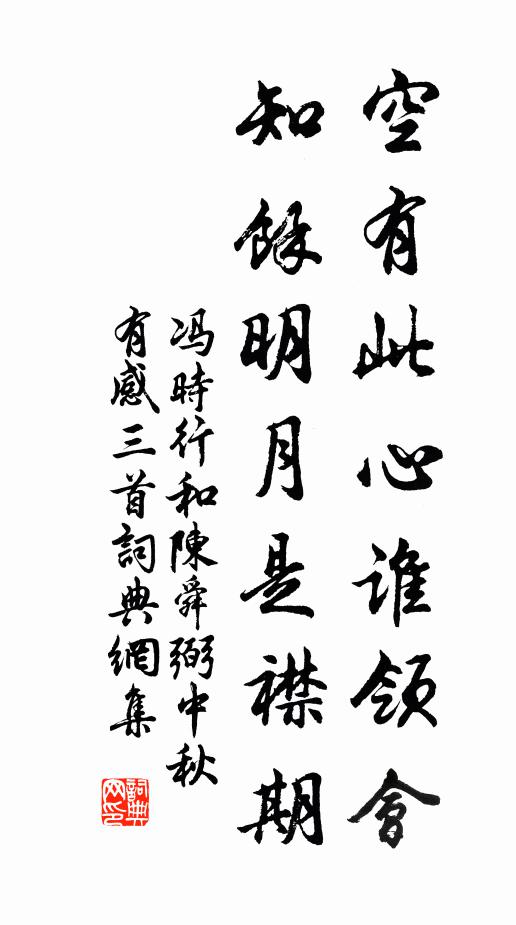 空有此心谁領會
知餘明月是襟期
冯時行和陳舜弼中秋
有感三首詞典網集
詞典
网印